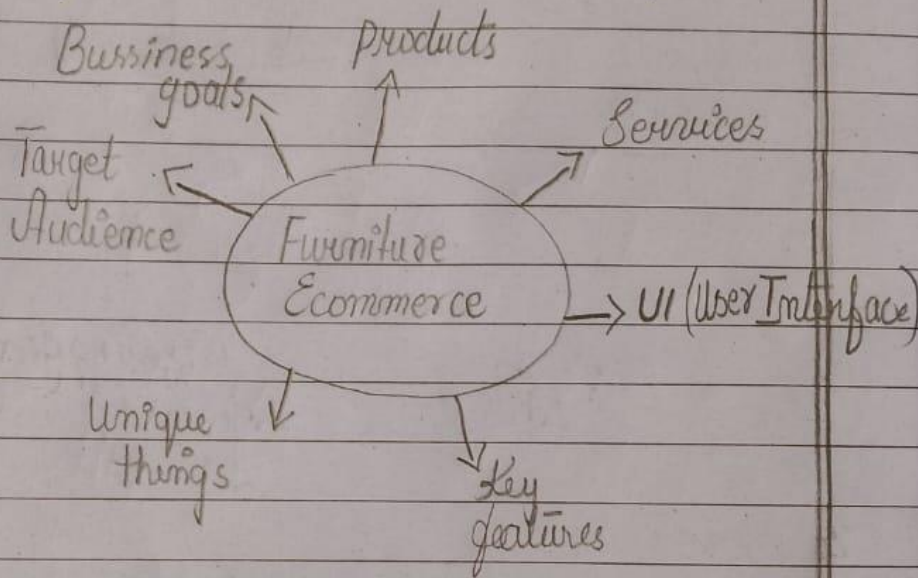 Bussiness
goals
Products
Services
Target
Audience
Furniture
Ecommerce
UI (User Interface)
Unique
things
Key
features